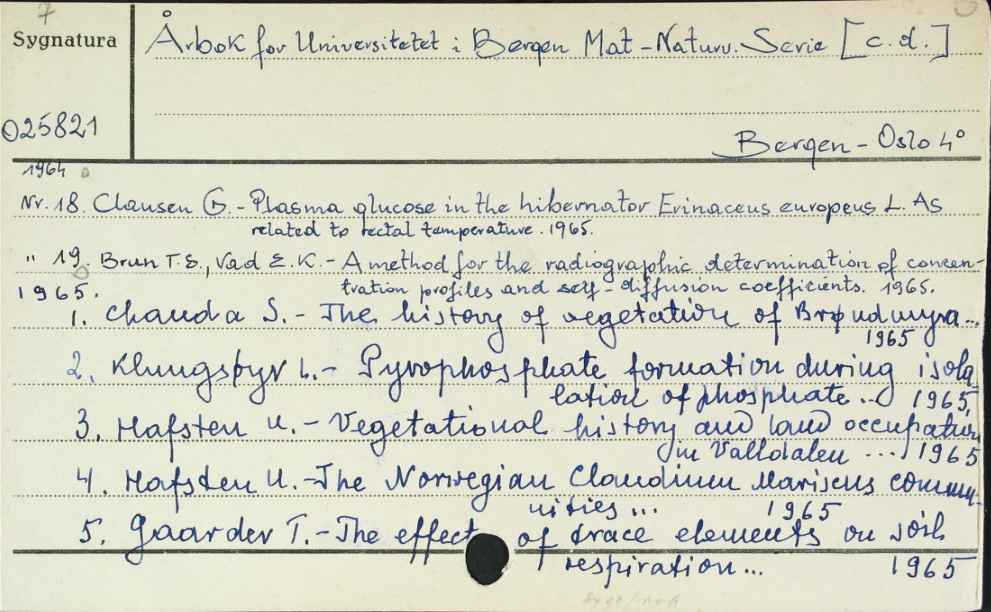 7
Sygnatura
Årbok for Universitetet i Bergen Mat-Naturv. Serie [c.d.]
025821
Bergen - Oslo 4°
1964
Nr. 18. Clausen G. - Plasma glucose in the hibernator Erinaceus europeus L. As
related to rectal temperature. 1965.
" 19. Brun T.S., Vad E.K. - A method for the radiographic determination of concen-
tration profiles and self-diffusion coefficients. 1965.
1965.
1. Chanda S. - The history of vegetation of Brøndmyra...
1965
2. Klungsøyr L. - Pyrophosphate formation during isola
lation of phosphate ... 1965,
3. Hafsten U. - Vegetational history and land occupation
in Valldalen ... 1965
4. Hafsten U. - The Norwegian Claudium Mariscus commu-
nities ... 1965
5. Gaarder T. - The effect of trace elements on soil
respiration... 1965